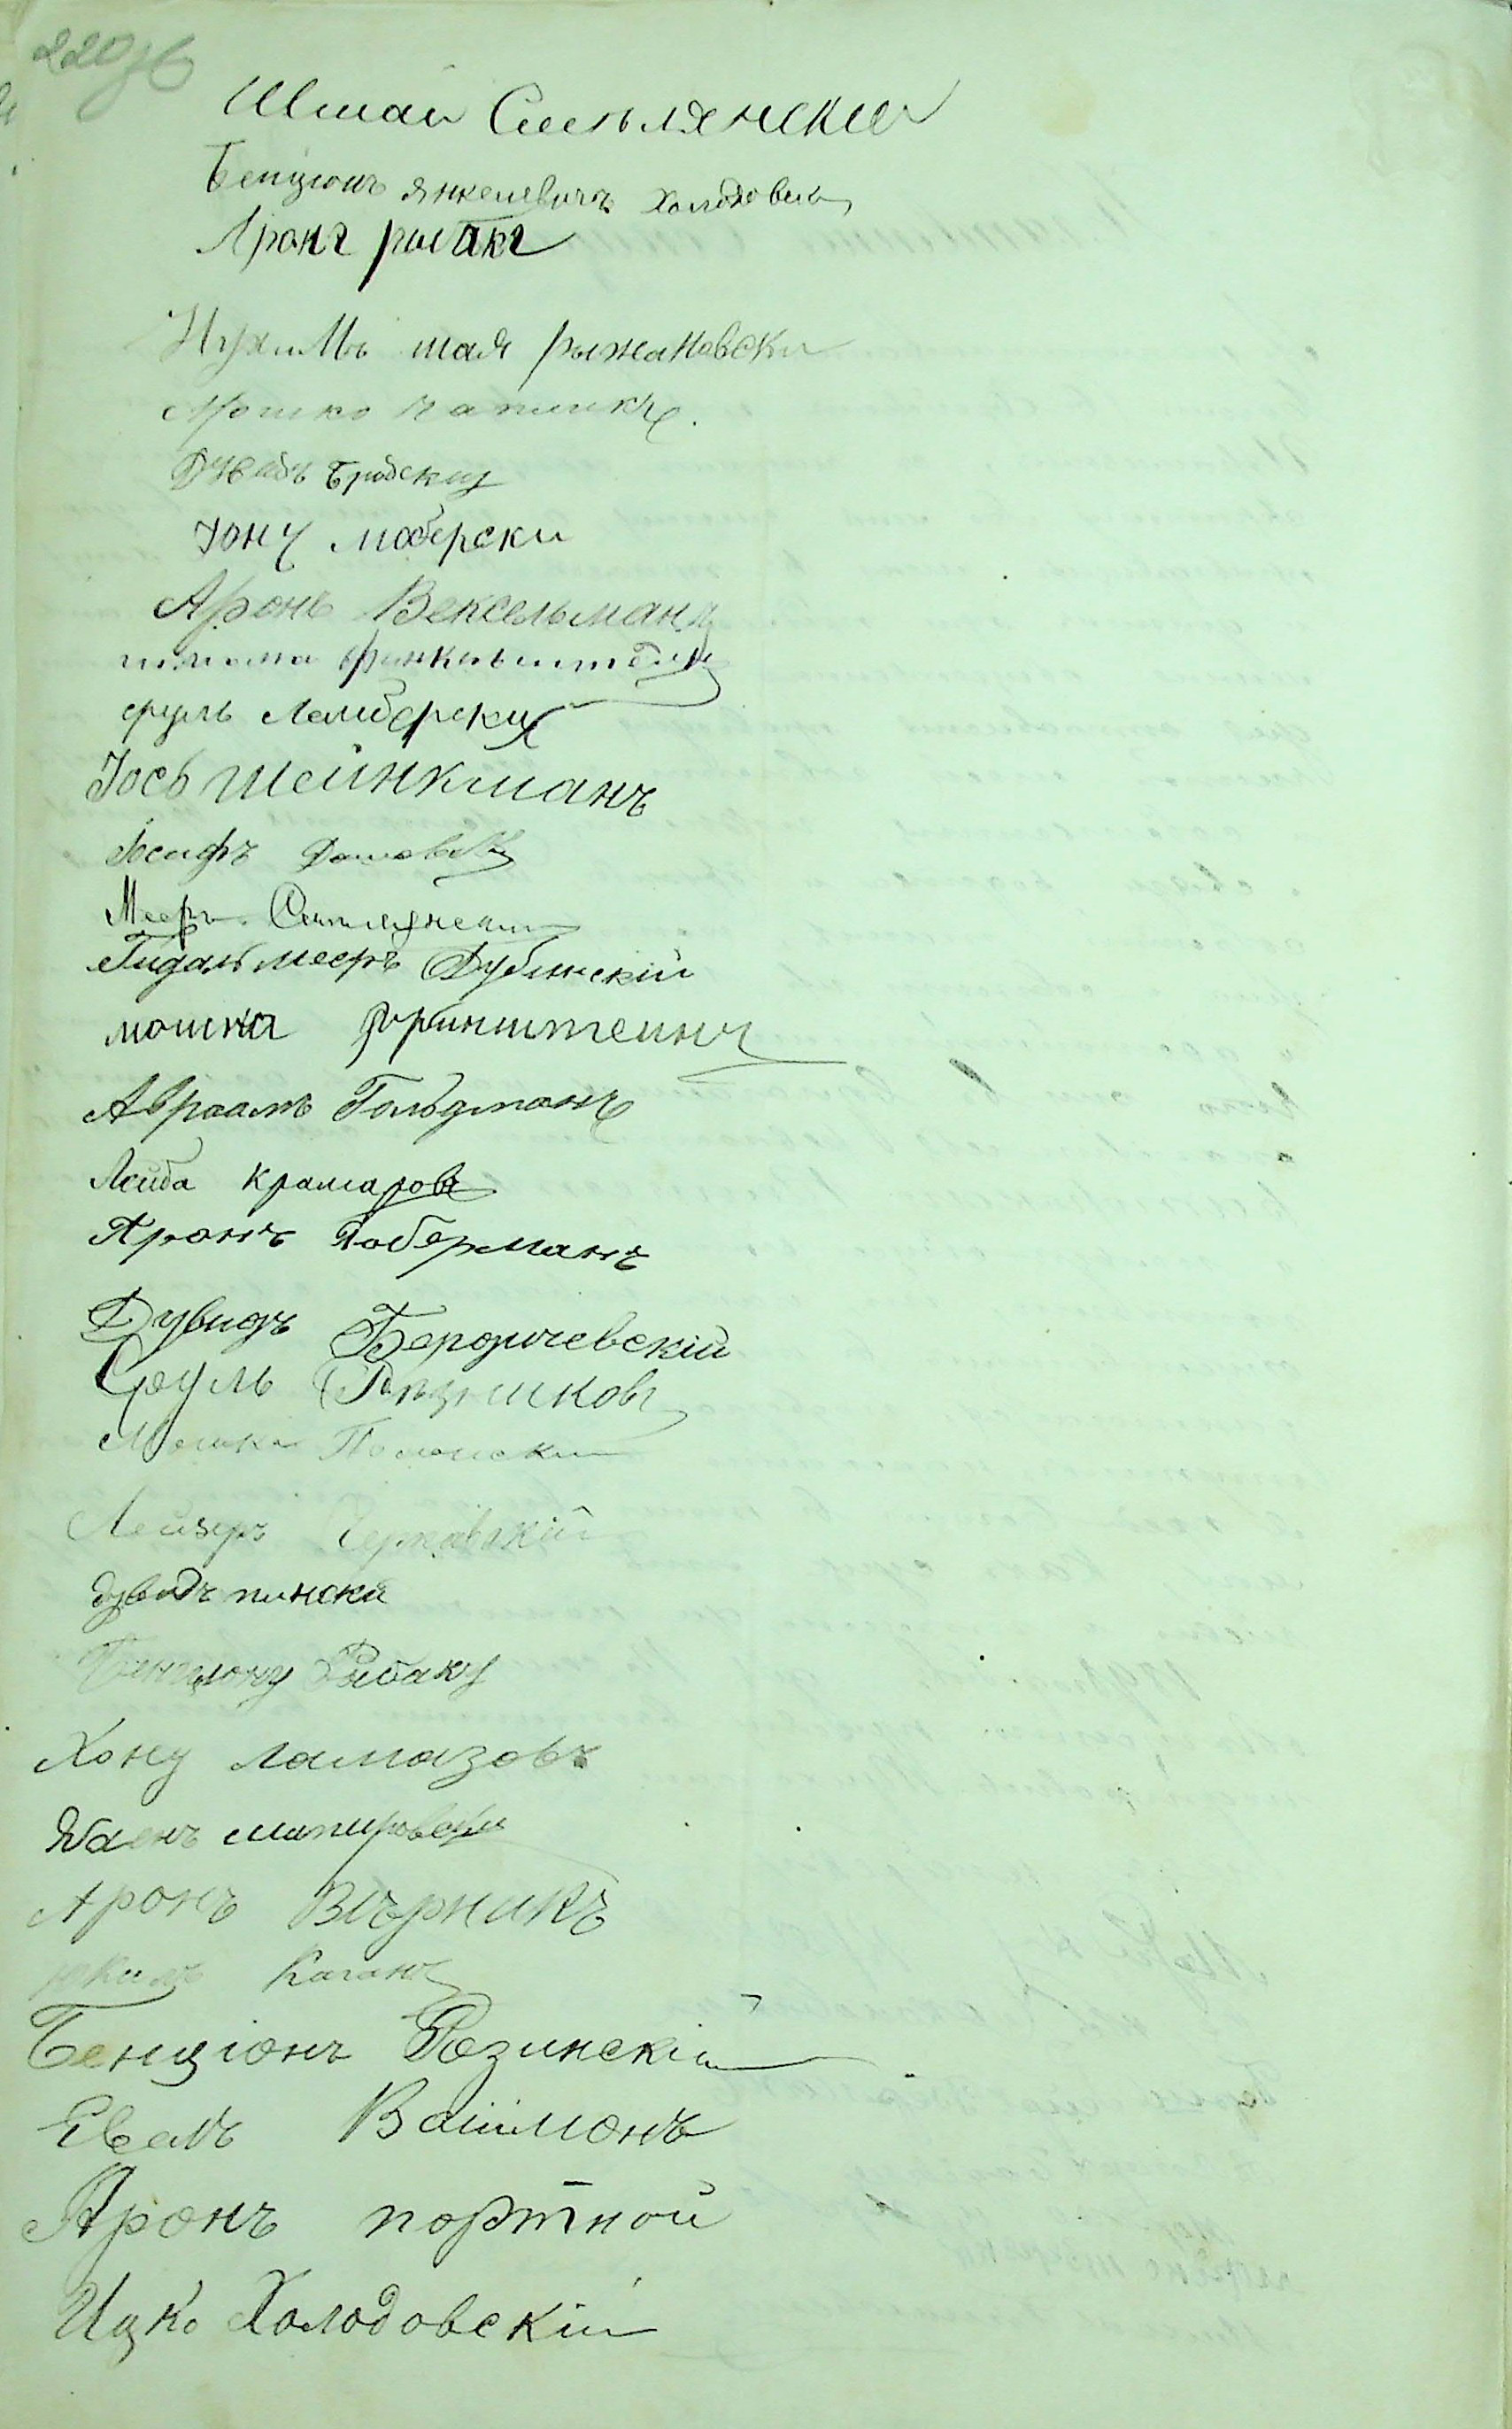 220об
Шмай Смелянский
Бенционъ Янкелевичъ Холодовски
Аронъ рыбакъ
Нухимъ шая рыжановски
Мошко чапникъ.
Дувидъ Бродскиу
Іону моберски
Аронъ Вексельманъ
шлиома финкильштейнъ
сруль Лемберски
Іось Шейнкманъ
Іосифъ Дашевски
Мееръ Смилянски
Гидалъ мееръ Дубинскій
мошка форинштеинъ
Авраамъ Гольдманъ
Лейба Крамаровъ
Аронъ Доберманъ
Дувидъ Бердичевскій
Сруль Резниковъ
Мошка Полонски
Лейзеръ Черкавскій
дувидъ пински
Бенциону Рыбаку
Хону ламазовъ
шпировски
Аронъ Вѣрникъ
Каганъ
Бенціонъ Розинскій
Вайманъ
Аронъ портной
Ицко Холодовскій